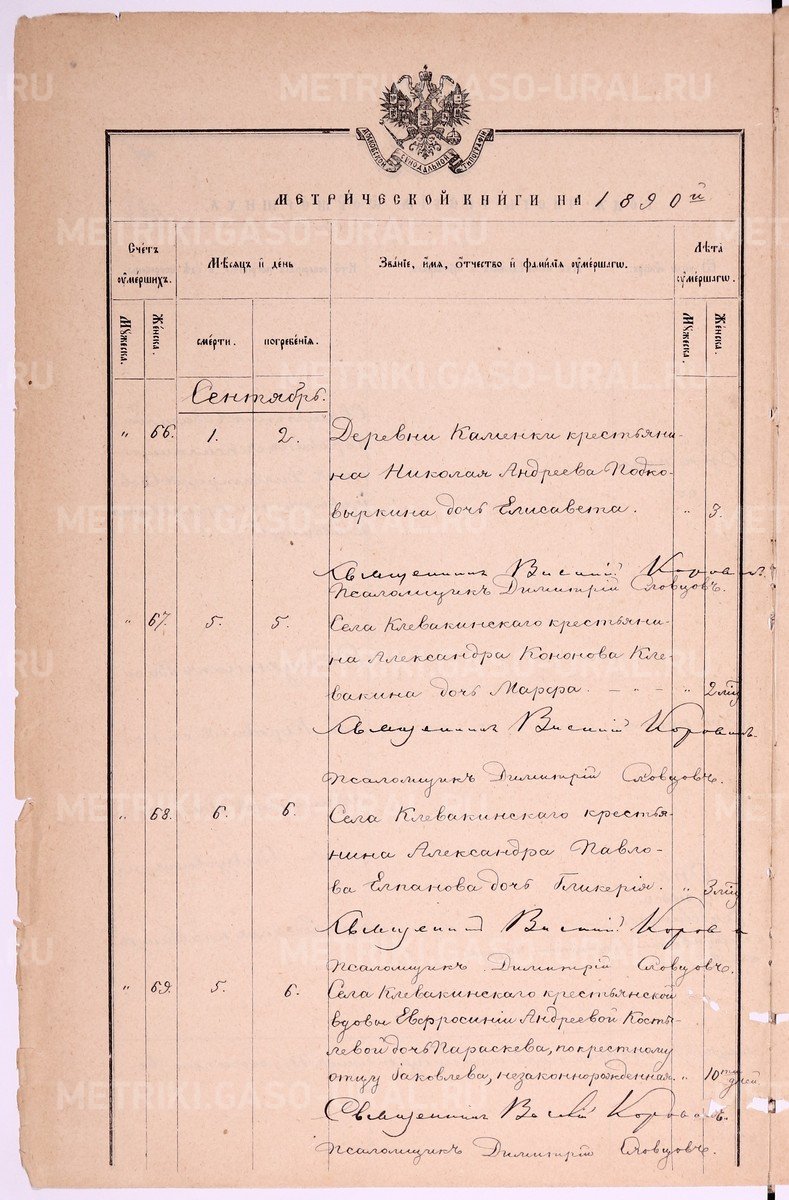 METRIKI.GASO-URAL.RU
МОСКОВСКОЙ СѴНОДАЛЬНОЙ ТИПОГРАФІИ
МЕТРИ́ЧЕСКОЙ КНИ́ГИ НА 1890й
Сче́тъ оу҆ме́ршихъ.
Мѣ́сяцъ и҆ де́нь
Зва́нїе, и҆́мя, ѻ҆́тчество и҆ фами́лїя оу҆ме́ршагѡ.
Лѣ́та оу҆ме́ршагѡ.
Мꙋ́жеска. Же́нска.
сме́рти. погребе́нїя.
Мꙋ́жеска. Же́нска.
Сентябрь.
" 66. 1. 2. Деревни Каменки крестьяни-
на Николая Андреева Подко-
выркина дочь Елисавета. " 3.
Священникъ
Псаломщикъ Димитрій Словцовъ.
" 67. 5. 5. Села Клевакинскаго крестьяни-
на Александра Кононова Кле-
вакина дочь Марѳа. - - - " 2 мѣс
Священникъ
Псаломщикъ Димитрій Словцовъ.
" 68. 6. 6. Села Клевакинскаго крестья-
нина Александра Павло-
ва Елпанова дочь Гликерія. " 3 мѣс
Священникъ
Псаломщикъ Димитрій Словцовъ.
" 69. 5. 6. Села Клевакинскаго крестьянской
вдовы Евфросиніи Андреевой Косты-
левой дочь Параскева, по крестному
отцу Іаковлева, незаконнорожденная. " 10ти дней
Священникъ
Псаломщикъ Димитрій Словцовъ.